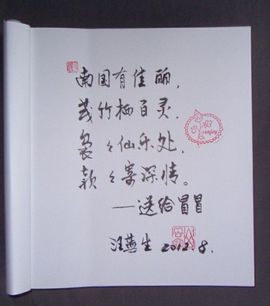 南国有佳丽,
茂竹栖百灵,
袅々仙乐处,
款々寄深情。
—送给冒冒
汪燕生 2012.8.